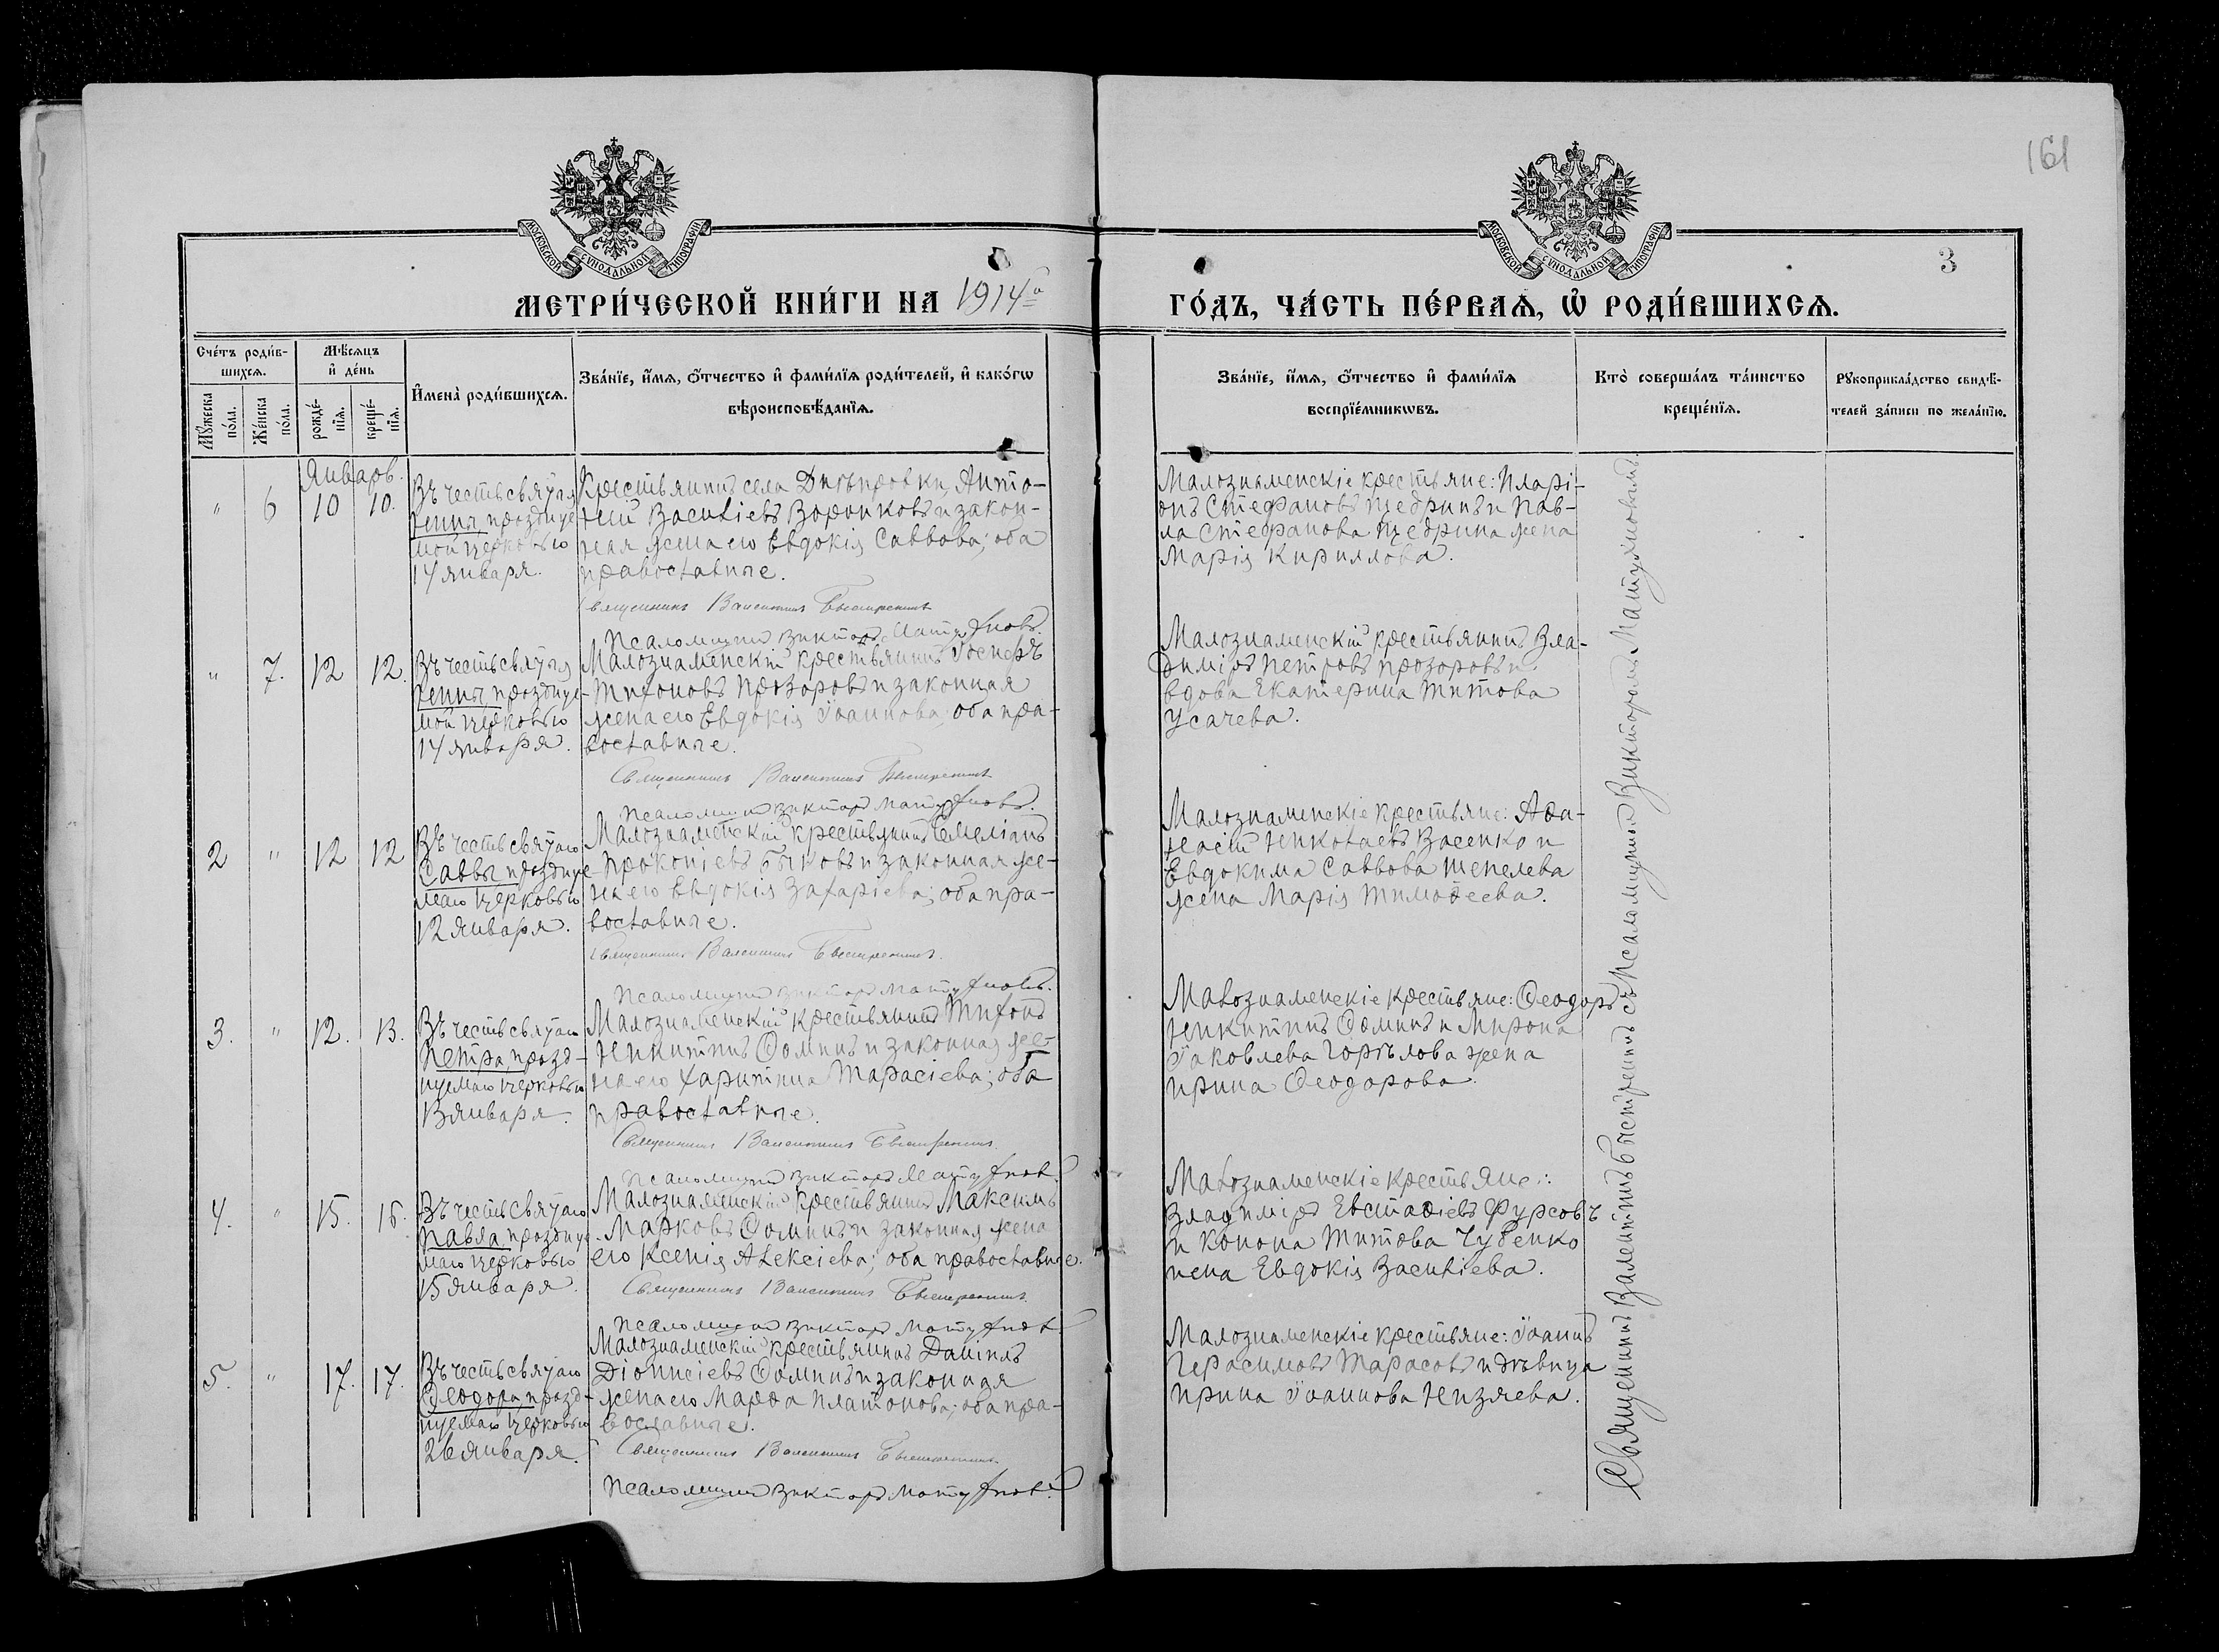 161
3
МОСКОВСКОЙ СѴНОДАЛЬНОЙ ТИПОГРАФІИ
МОСКОВСКОЙ СѴНОДАЛЬНОЙ ТИПОГРАФІИ
МЕТРИ́ЧЕСКОЙ КНИ́ГИ НА 1914й
ГО́ДЪ, ЧА́СТЬ ПЕ́РВАѦ, Ѡ҆ РОДИ́ВШИХСѦ.
Сче́тъ роди́в-
шихсѧ.
Мꙋ́жеска
по́ла.
Же́нска
по́ла.
Мѣ́сѧцъ
и҆ де́нь
рожде́-
нїѧ.
креще́-
нїѧ.
И҆мена̀ роди́вшихсѧ.
Зва́нїе, и҆́мѧ, ѻ҆́тчество и҆ фами́лїѧ роди́телей, и҆ како́гѡ
вѣроисповѣ́данїѧ.
Зва́нїе, и҆́мѧ, ѻ҆́тчество и҆ фами́лїѧ
воспрїе́мникѡвъ.
Кто̀ соверша́лъ та́инство
креще́нїѧ.
Рꙋкоприкла́дство свидѣ́-
телей за́писи по жела́нїю.
Январь.
" 6 10 10.
Въ честь святыя
Нины, праздnуе-
мой церковью
14 января.
Крестьянинъ села Днѣпровки, Анто-
ній Василіевъ Воронковъ и закон-
ная жена его Евдокія Саввова; оба
православные.
Священникъ Валентинъ Быстренинъ
Псаломщикъ Викторъ Матухновъ.
Малознаменскіе крестьяне: Иларі-
онъ Стефановъ Щедринъ и Пав-
ла Стефанова Щедрина жена
Марія Кириллова.
" 7. 12 12.
Въ честь святыя
Нины, празднуе-
мой церковью
14 января.
Малознаменскій крестьянинъ Іосифъ
Тихоновъ Прозоровъ и законная
жена его Евдокія Іоаннова; оба пра-
вославные.
Священникъ Валентинъ Быстренинъ
Псаломщикъ Викторъ Матухновъ.
Малознаменскій крестьянинъ Вла-
диміръ Петровъ Прозоровъ и
вдова Екатерина Титова
Усачева.
2 " 12 12
Въ честь святаго
Саввы, празднуе-
маго церковью
12 января.
Малознаменскій крестьянинъ Емеліанъ
Прокопіевъ Быковъ и законная же-
на его Евдокія Захаріева; оба пра-
вославные.
Священникъ Валентинъ Быстренинъ.
Псаломщикъ Викторъ Матухновъ.
Малознаменскіе крестьяне: Аѳа-
насій Николаевъ Васенко и
Евдокима Саввова Шепелева
жена Марія Тимоѳеева.
3. " 12. 13.
Въ честь святаго
Петра, празд-
нуемаго церковью
13 января.
Малознаменскій крестьянинъ Тихонъ
Никитинъ Ѳоминъ и законная же-
на его Харитина Тарасіева; оба
православные.
Священникъ Валентинъ Быстренинъ.
Псаломщикъ Викторъ Матухновъ.
Малознаменскіе крестьяне: Ѳеодоръ
Никитинъ Ѳоминъ и Мирона
Іаковлева Горѣлова жена
Ирина Ѳеодорова.
4. " 15. 16.
Въ честь святаго
Павла, празднуе-
маго церковью
15 января.
Малознаменскій крестьянинъ Максимъ
Марковъ Ѳоминъ и законная жена
его Ксенія Алексіева; оба православные.
Священникъ Валентинъ Быстренинъ.
Псаломщикъ Викторъ Матухновъ
Малознаменскіе крестьяне:
Владиміръ Евстаѳіевъ Фурсовъ
и Конона Титова Чубенко
жена Евдокія Василіева.
5. " 17. 17.
Въ честь святаго
Ѳеодора, празд-
нуемаго церковью
26 января.
Малознаменскій крестьянинъ Даніилъ
Діонисіевъ Ѳоминъ и законная
жена его Марѳа Платонова; оба пра-
вославные.
Священникъ Валентинъ Быстренинъ.
Псаломщикъ Викторъ Матухновъ.
Малознаменскіе крестьяне: Іоаннъ
Герасимовъ Тарасовъ и дѣвица
Ирина Іоаннова Низяева.
Священникъ Валентинъ Быстренинъ съ Псаломщикомъ Викторомъ Матухновымъ.